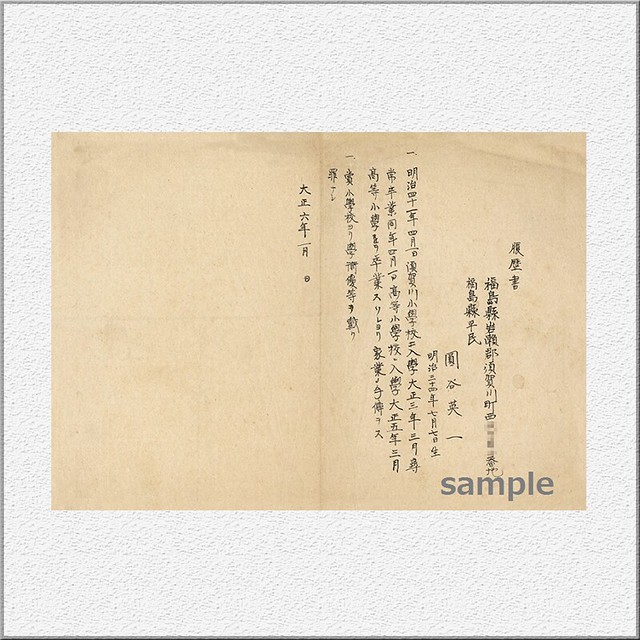 履歴書
福島縣岩瀬郡須賀川町西 番地
福島縣平民
圓谷英一
明治三十四年七月七日生
一、明治四十一年四月一日須賀川小學校ニ入學大正三年三月尋
常卒業同年四月一日高等小學校ニ入學大正五年三月
高等小學 卒業ス ヨリ家業 手傳ヲス
一、賞小學校ヨリ學術優等ヲ戴ク
罪ナシ
大正六年一月 日
sample